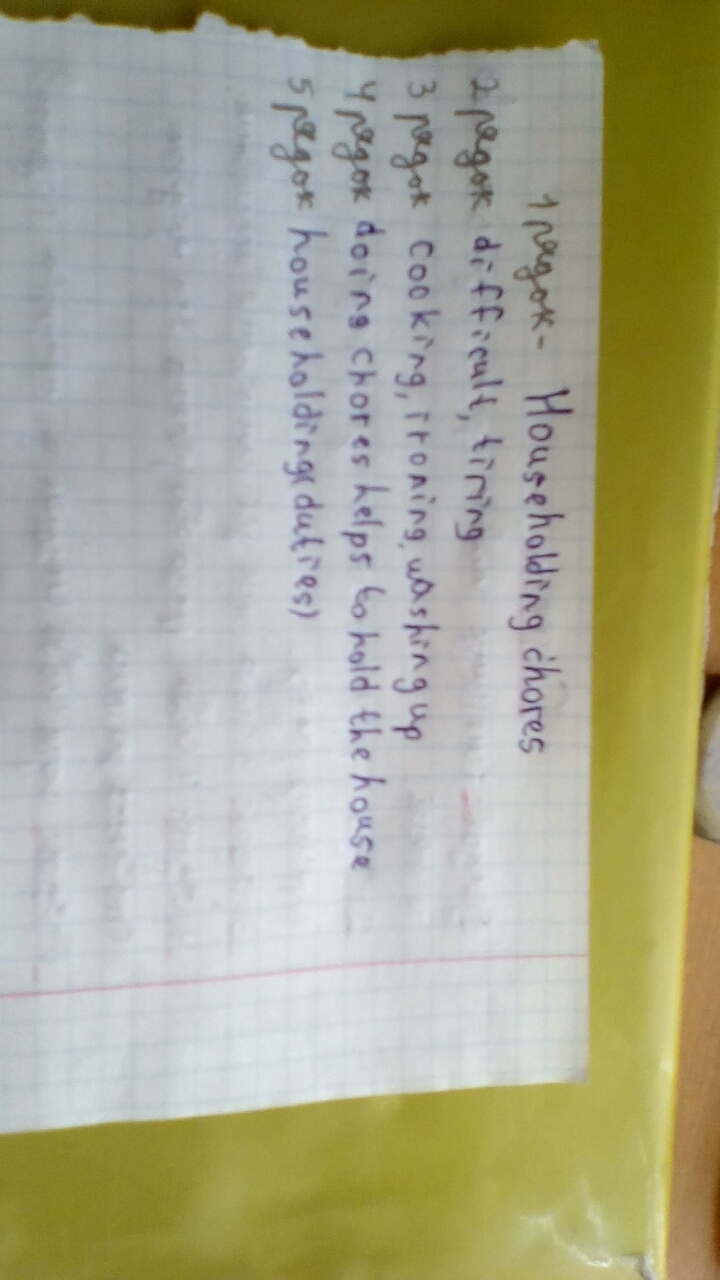 1 рядок- Householding chores
2 рядок difficult, tiring
3 рядок cooking, ironing, washing up
4 рядок doing chores helps to hold the house
5 рядок householding(duties)